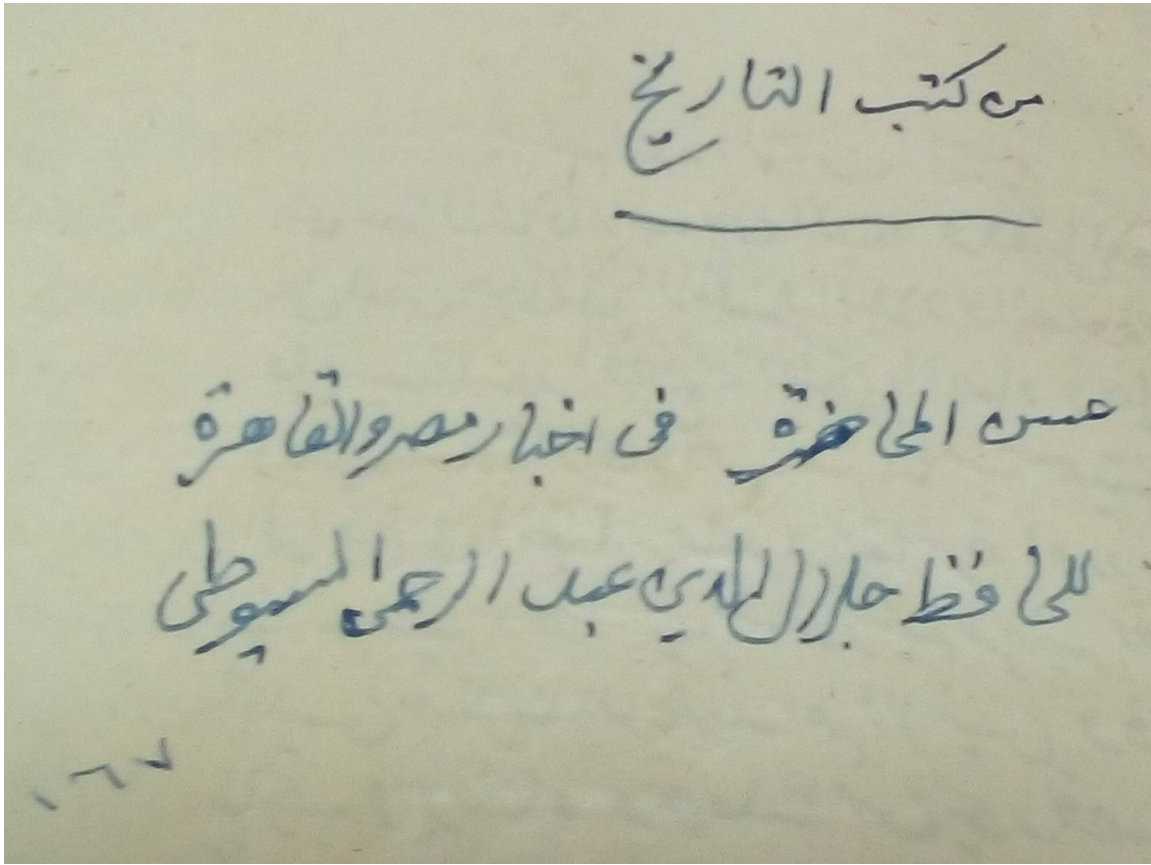 من كتب التاريخ
حسن المحاضرة فى اخبار مصر والقاهرة
للحافظ جلال الدين عبد الرحمن السيوطى